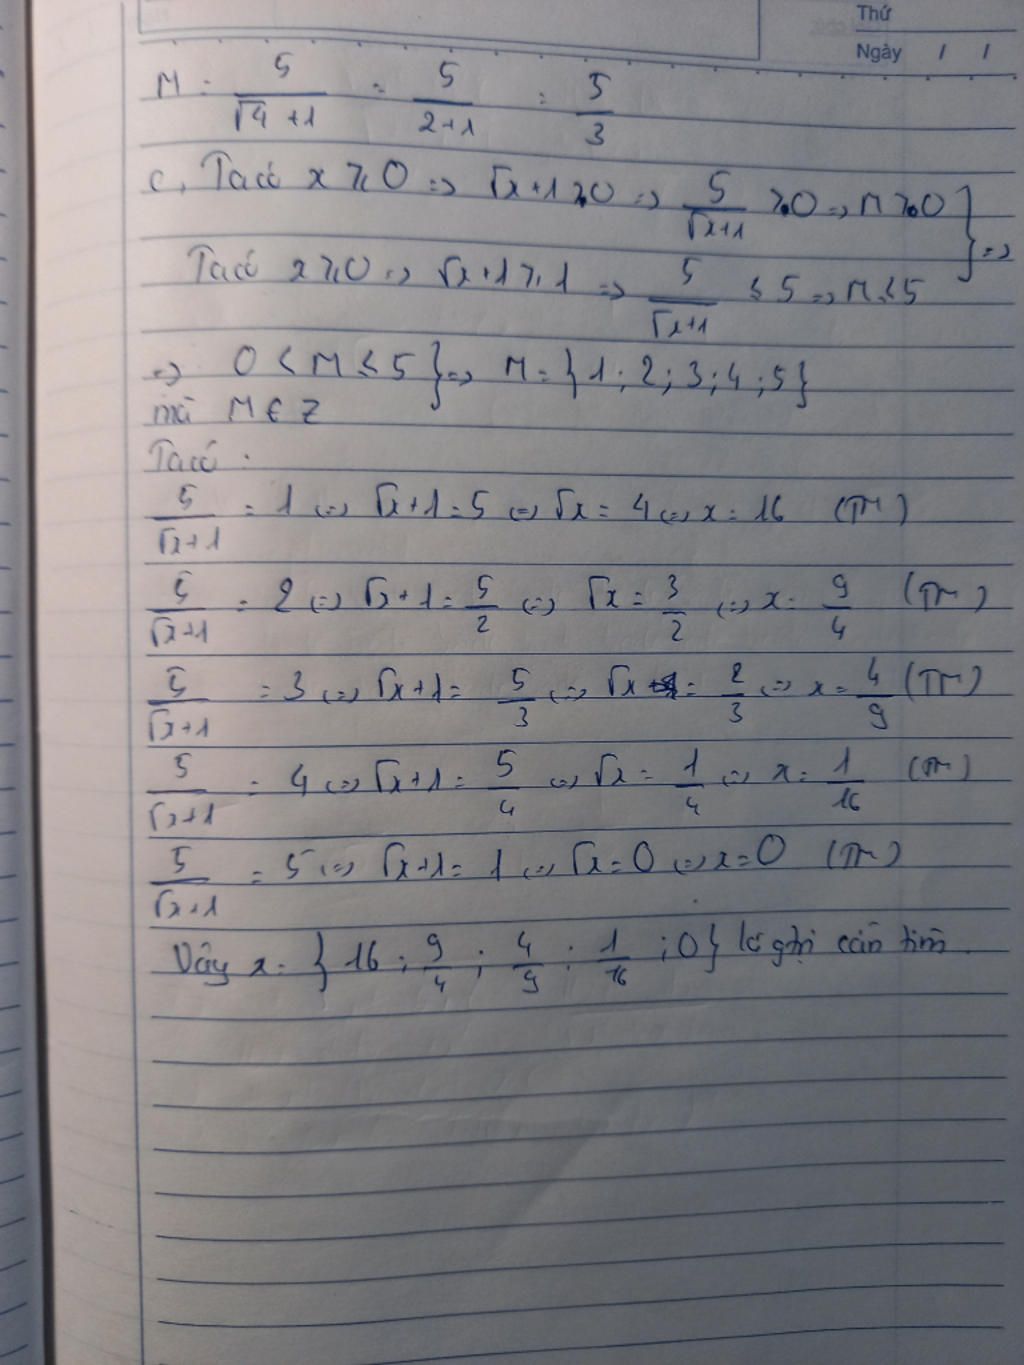 Thứ
Ngày / /
M = 5/(√4 + 1) = 5/(2+1) = 5/3
c, Ta có x ≥ 0 => √x + 1 > 0 => 5/(√x+1) > 0 => M > 0 } =>
Ta có x ≥ 0 => √x + 1 ≥ 1 => 5/(√x+1) ≤ 5 => M ≤ 5
=> 0 < M ≤ 5 } => M = {1 ; 2 ; 3 ; 4 ; 5}
mà M ∈ Z
Ta có :
5/(√x+1) = 1 <=> √x + 1 = 5 <=> √x = 4 <=> x = 16 (TM)
5/(√x+1) = 2 <=> √x + 1 = 5/2 <=> √x = 3/2 <=> x = 9/4 (TM)
5/(√x+1) = 3 <=> √x + 1 = 5/3 <=> √x = 2/3 <=> x = 4/9 (TM)
5/(√x+1) = 4 <=> √x + 1 = 5/4 <=> √x = 1/4 <=> x = 1/16 (TM)
5/(√x+1) = 5 <=> √x + 1 = 1 <=> √x = 0 <=> x = 0 (TM)
Vậy x = {16 ; 9/4 ; 4/9 ; 1/16 ; 0} là gtrị cần tìm